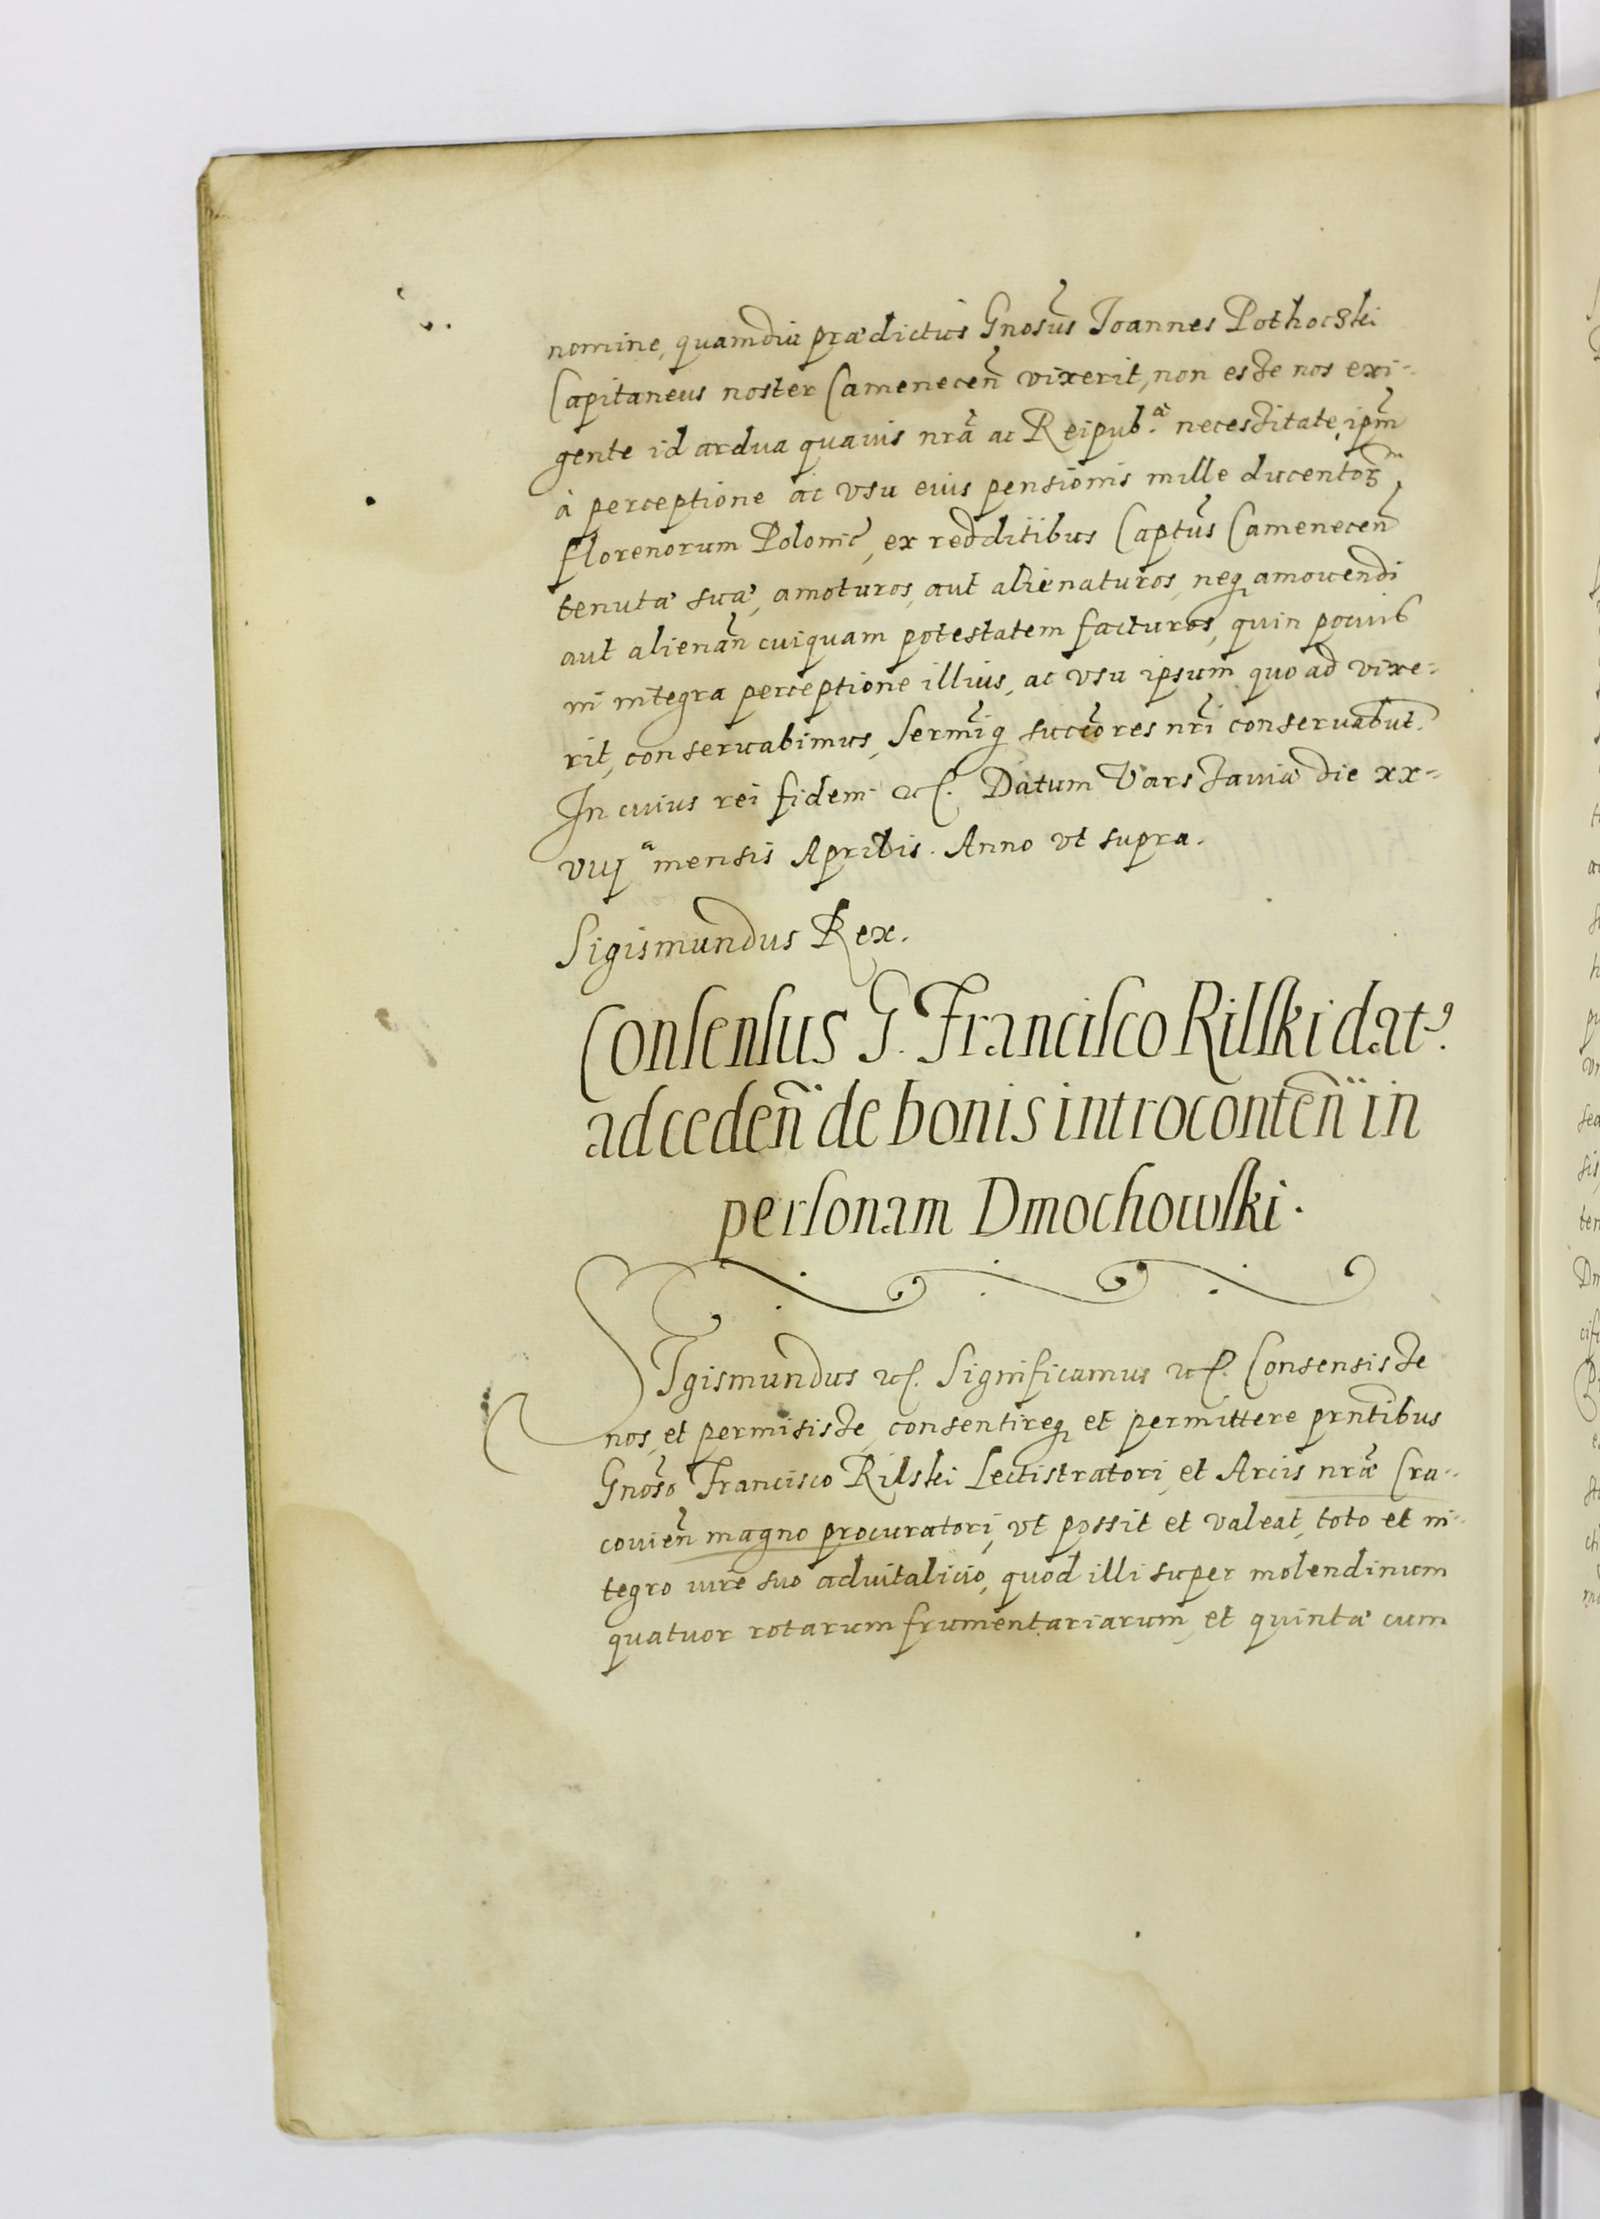 nomine, quamdiu prædictus Gnosus Joannes Pothocski
Capitaneus noster Camenecen̄ vixerit, non esse nos exi-
gente id ardua quauis nrā ac Reipub.ᵃ necessitate, ipm̄
à perceptione ac vsu eius pensionis mille ducentor
florenorum Polonic̄, ex redditibus Captūs Camenecen̄
tenutæ suæ, amoturos, aut alienaturos, neq amouendi
aut alienan̄ cuiquam potestatem facturos, quin
in integra perceptione illius, ac vsu ipsum quo ad vixe-
rit, conseruabimus, Sermiq succōres nrī conseruabut.
In cuius rei fidem etc. Datum Varssauiæ die xx-
viijᵃ mensis Aprilis. Anno vt supra.
Sigismundus Rex.
Consensus G. Francisco Rilski dat⁹.
ad ceden̄ de bonis introconten̄ in
personam Dmochowski.
SIgismundus etc. Significamus etc. Consensisse
nos, et permisisse, consentireq et permittere prntibus
Gnoso Francisco Rilski Lectistratori, et Arcis nræ Cra-
couien̄ magno procuratori, vt possit et valeat, toto et in-
tegro iure suo aduitalicio, quod illi super molendinum
quatuor rotarum frumentariarum, et quintæ cum